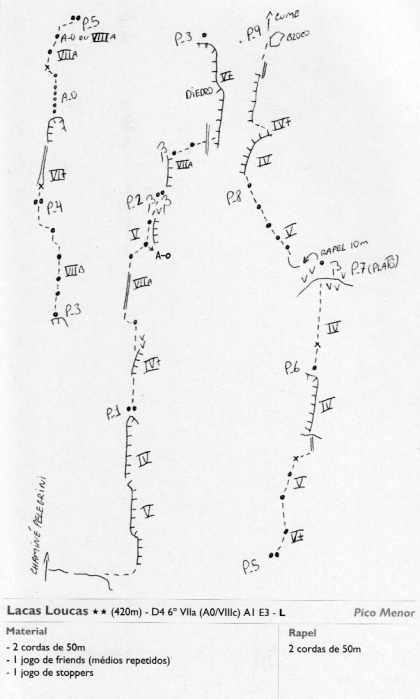 P_5
A-0 ou VIIIA
VIIA
A-0
VI+
P_4
VIIA
P_3
P_3
V+
DIEDRO
VIIA
P_2
V
A-0
VIIA
IV+
P_1
IV
V
CHAMINÉ PELEGRINI
CUME
P_9
BLOCO
IV+
IV
P_8
V
RAPEL 10m
P_7 (PLATÔ)
IV
P_6
IV
V
V+
P_5
Lacas Loucas ★★ (420m) - D4 6° VIIa (A0/VIIIc) A1 E3 - L Pico Menor
Material
- 2 cordas de 50m
- 1 jogo de friends (médios repetidos)
- 1 jogo de stoppers
Rapel
2 cordas de 50m